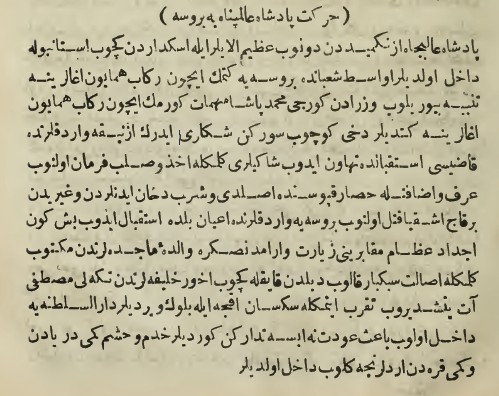 ( حركت پادشاه عالمپناه به بروسه )
پادشاه عالیجاه ازنكمیددن دونوب عظیم الایلر ایله اسكداردن كچوب استانبوله
داخل اولدیلر اواسط شعبانده بروسه یه كتمك ایچون ركاب همایون اغازینه
تنبیه بیوریلوب وزرادن كورجی محمد پاشا مهمات كورمك ایچون ركاب همایون
اغازینه كتدیلر دخی كوچوب سوركن شكاری ایدرك ازنیقه واردقلرنده
قاضیسی استقبالنده تهاون ایدوب شاكیلری كلمكله اخذ وصلب فرمان اولنوب
عرف واضافتله حصار قپوسنده اصلدی وشرب دخان ایدنلردن وغیریدن
برقاچ اشقیا قتل اولنوب بروسه یه واردقلرنده اعیان بلده استقبال ایدوب بش كون
اجداد عظام مقابرینی زیارت وارامدنصكره والدهٔ ماجده لرندن مكتوب
كلمكله اصالت سبكبار قالوب دیلدن قایقله كچوب اخور خلیفه لرندن تكه لی مصطفی
آت یتشدیروب تقرب ایتمكله سكسان اقچه ایله بلوك ویردیلر دارالسلطنه یه
داخل اولوب باعث عودت نه ایسه تداركن كوردیلر خدم وحشم كمی دریادن
وكمی قره دن اردلرنجه كلوب داخل اولدیلر